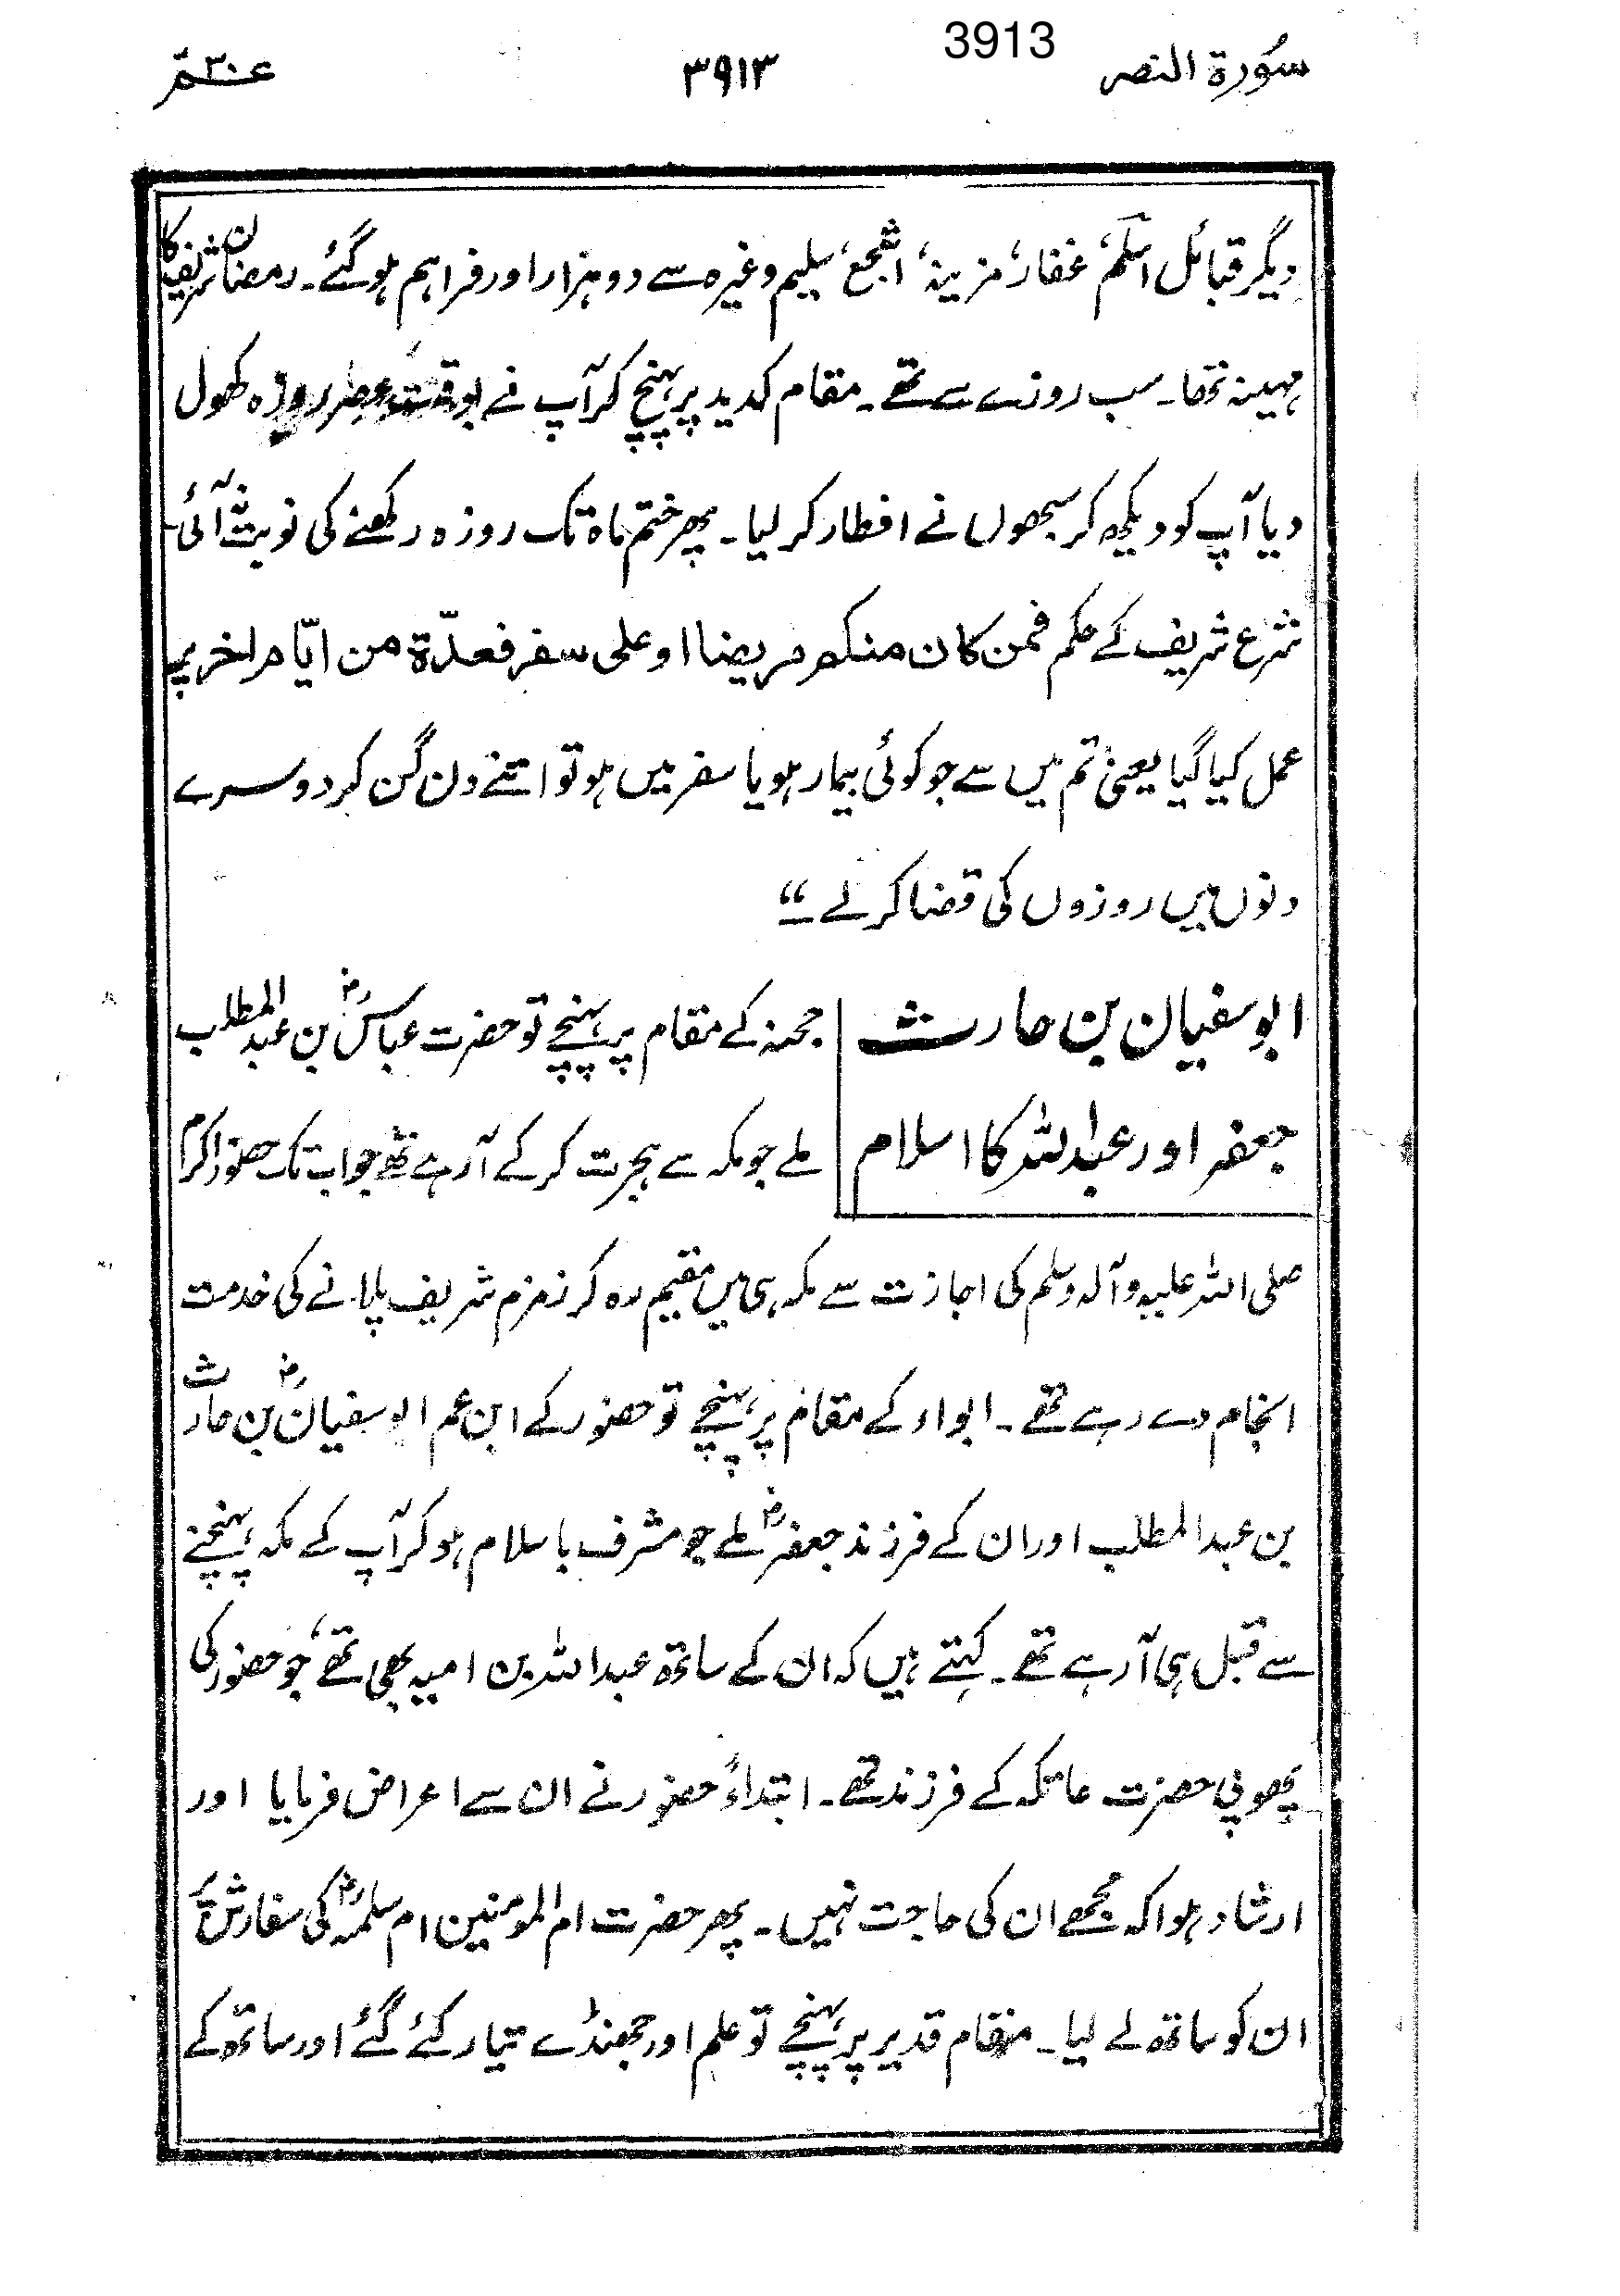 3913
سُورة النصر ۳۹۱۳ عمّ ۳۰
دیگر قبائل اسلم، غفار، مزینہ، اشجع، سلیم وغیرہ سے دو ہزار اور فراہم ہو گئے۔ رمضان شریف کا
مہینہ تھا۔ سب روزے سے تھے۔ مقام کدید پر پہنچ کر آپ نے بوقت عصر روزہ کھول
دیا آپ کو دیکھ کر سبھوں نے افطار کر لیا۔ پھر ختم ماہ تک روزہ رکھنے کی نوبت نہ آئی۔
شرع شریف کے حکم فمن کان منکم مریضا او علی سفر فعدّة من ایّام اخر پر
عمل کیا گیا یعنی تم میں سے جو کوئی بیمار ہو یا سفر میں ہو تو اتنے دن گن کر دوسرے
دنوں میں روزوں کی قضا کر لے۔“
ابو سفیان بن حارث
جعفر اور عبداللہ کا اسلام
جحفہ کے مقام پر پہنچے تو حضرت عباسؓ بن عبدالمطلب
ملے جو مکہ سے ہجرت کر کے آرہے تھے جو اب تک حضور اکرم
صلی اللہ علیہ وآلہ وسلم کی اجازت سے مکہ ہی میں مقیم رہ کر زمزم شریف پلانے کی خدمت
انجام دے رہے تھے۔ ابواء کے مقام پر پہنچے تو حضور کے ابن عم ابو سفیانؓ بن حارث
بن عبدالمطلب اور ان کے فرزند جعفرؓ ملے جو مشرف باسلام ہو کر آپ کے مکہ پہنچنے
سے قبل ہی آرہے تھے۔ کہتے ہیں کہ ان کے ساتھ عبداللہ بن امیہ بھی تھے، جو حضور کی
پھوپی حضرت عاتکہ کے فرزند تھے۔ ابتداءً حضور نے ان سے اعراض فرمایا اور
ارشاد ہوا کہ مجھے ان کی حاجت نہیں۔ پھر حضرت ام المومنین ام سلمہؓ کی سفارش پر
ان کو ساتھ لے لیا۔ مقام قدیر پر پہنچے تو علم اور جھنڈے تیار کئے گئے اور ساتھ کے